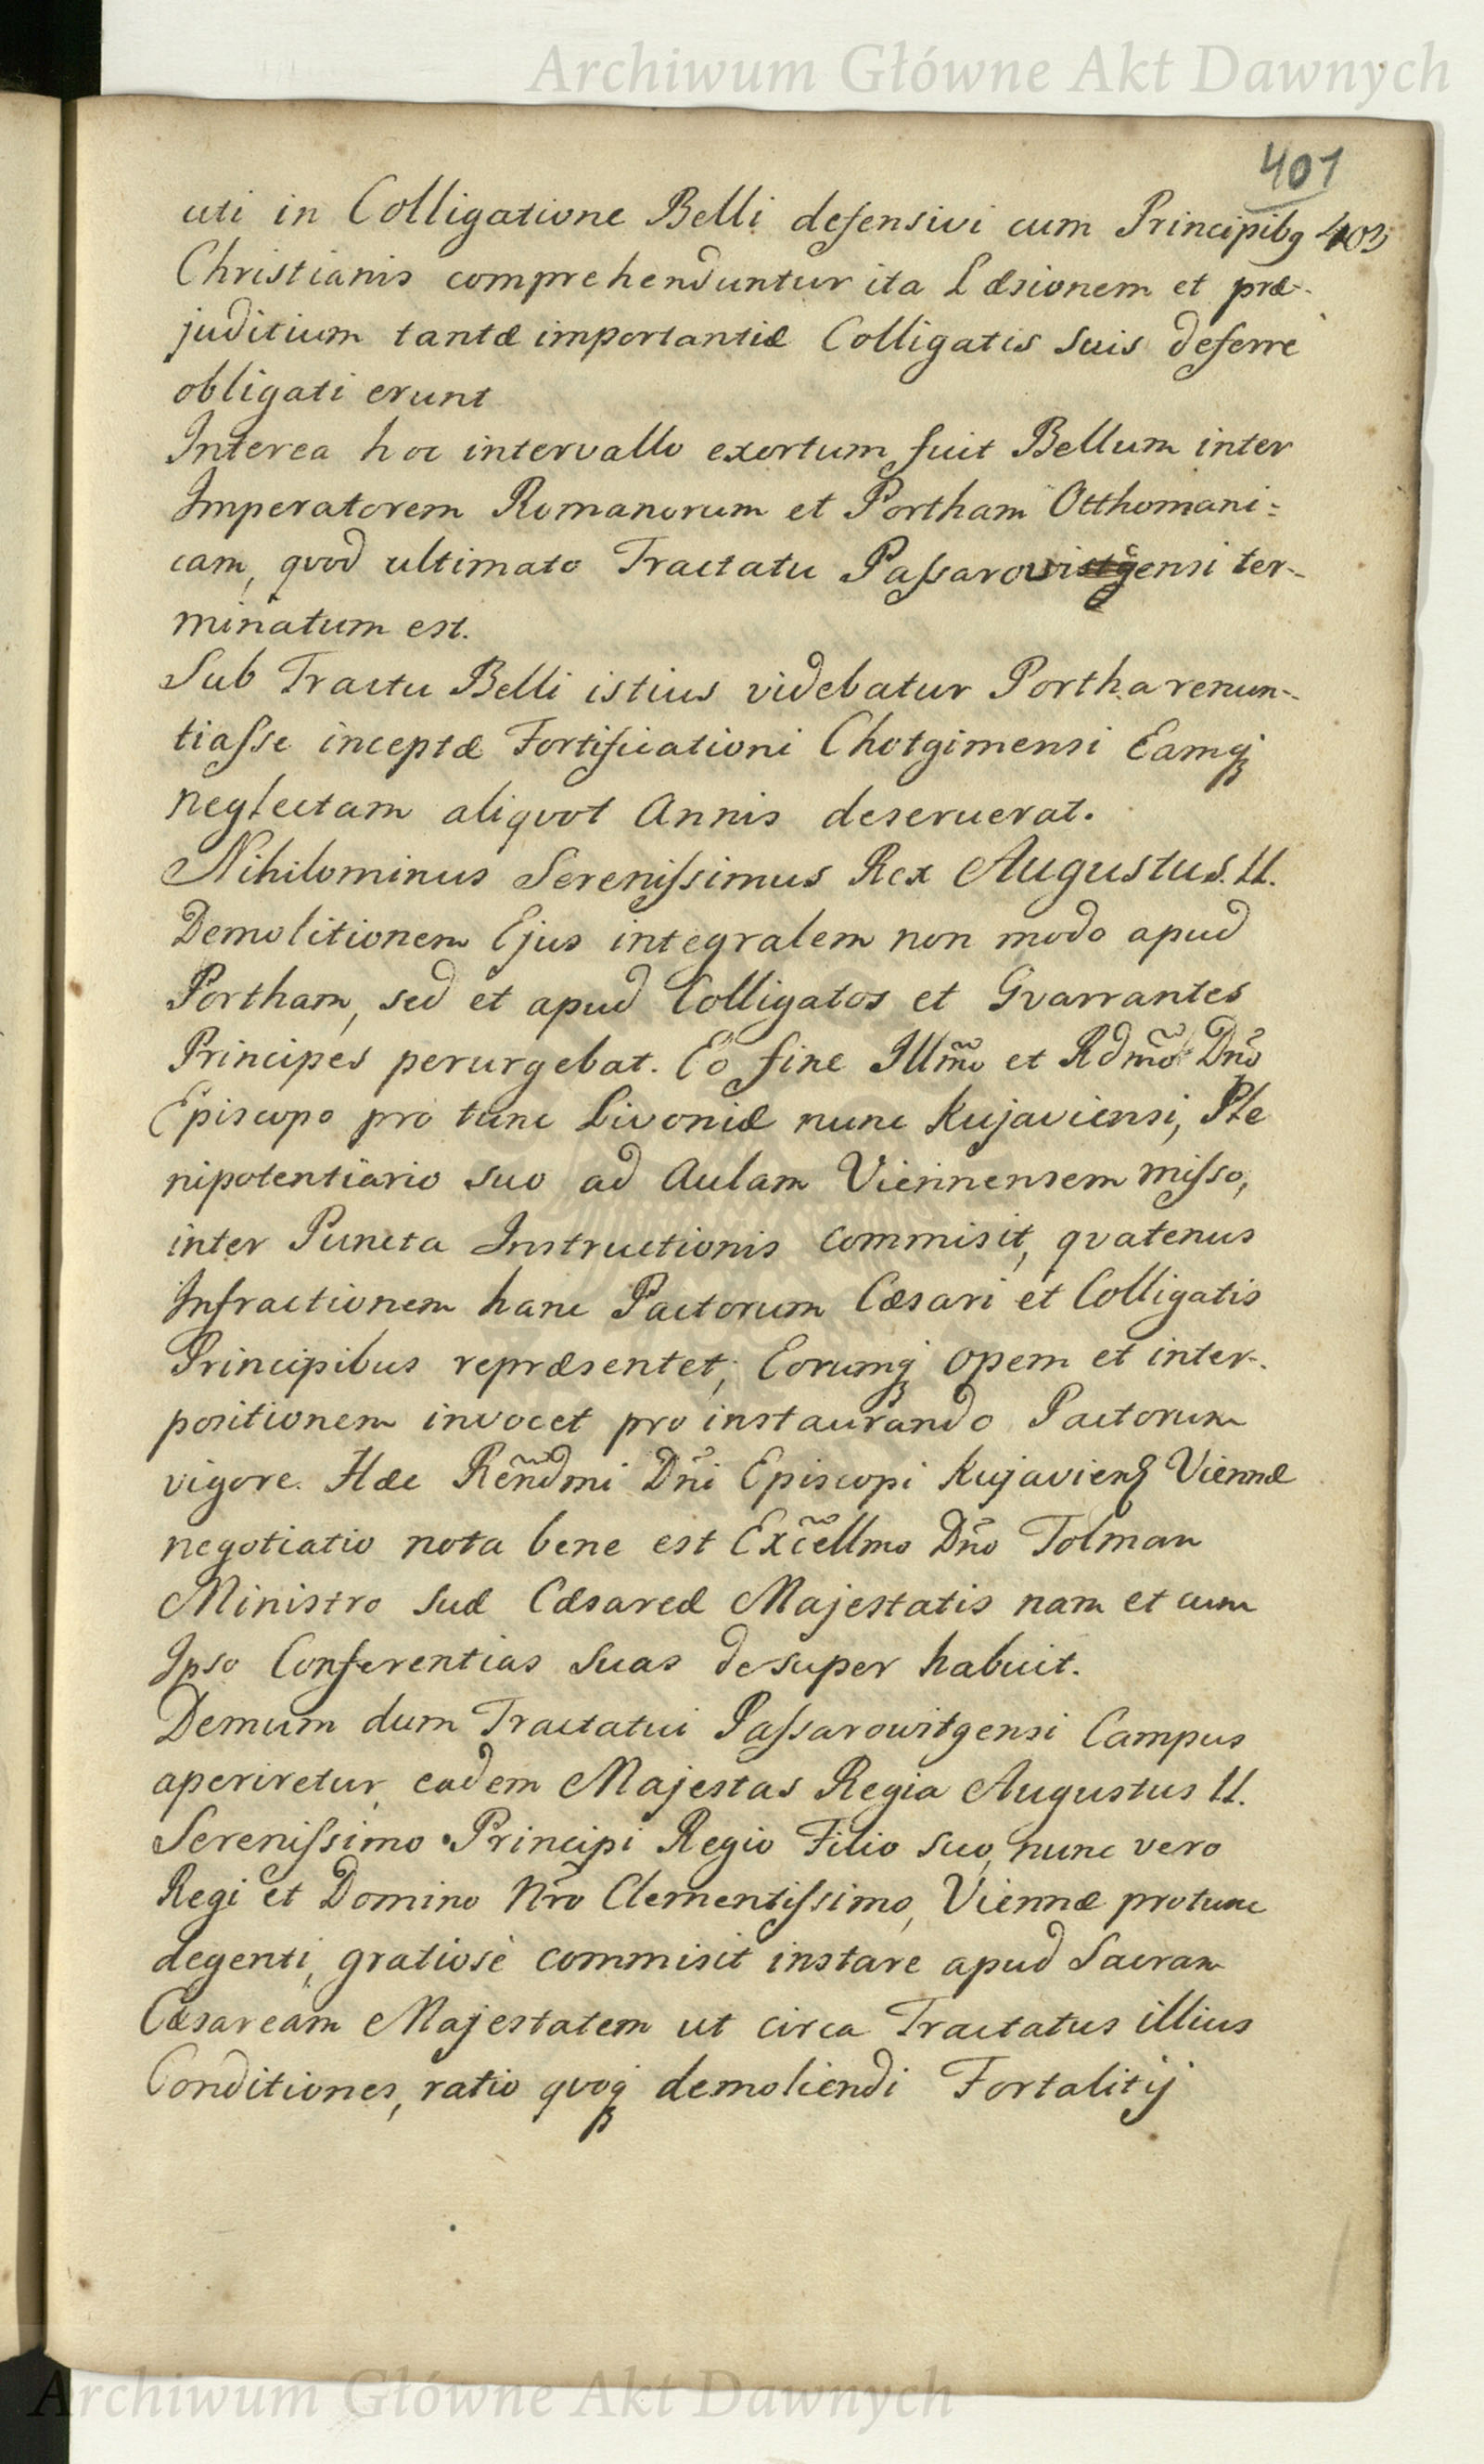 Archiwum Główne Akt Dawnych
401
uti in Colligatione Belli defensivi cum Principibq 403
Christianis comprehenduntur ita Læsionem et præ-
juditium tantæ importantiæ Colligatis suis deferre
obligati erunt
Interea hoc intervallo exortum fuit Bellum inter
Imperatorem Romanorum et Portham Otthomani=
cam, qvod ultimato Tractatu Passarowitgensi ter-
minatum est.
Sub Tractu Belli istius videbatur Portha renun-
tiasse inceptæ Fortificationi Chotgimensi Eamq
neglectam aliqvot Annis deseruerat.
Nihilominus Serenissimus Rex Augustus. II.
Demolitionem Ejus integralem non modo apud
Portham, sed et apud Colligatos et Gvarrantes
Principes perurgebat. Eo fine Illm̃o et Rdm̃o Dño
Episcopo pro tunc Livoniæ nunc Kujaviensi, Ple
nipotentiario suo ad Aulam Viennensem misso,
inter Puncta Instructionis commisit, qvatenus
Infractionem hanc Pactorum Cæsari et Colligatis
Principibus repræsentet; Eorumq opem et inter-
positionem invocet pro instaurando Pactorum
vigore. Hæc Reñdmi Dñi Episcopi Kujaviens Viennæ
negotiatio nota bene est Exc̃ellmo Dño Tolman
Ministro suæ Cæsareæ Majestatis nam et cum
Ipso Conferentias suas desuper habuit.
Demum dum Tractatui Passarowitgensi Campus
aperiretur, eadem Majestas Regia Augustus II.
Serenissimo Principi Regio Filio suo, nunc vero
Regi et Domino Nr̃o Clementissimo, Viennæ protunc
degenti, gratiosè commisit instare apud Sacram
Cæsaream Majestatem ut circa Tractatus illius
Conditiones, ratio qvoq demoliendi Fortalitij
Archiwum Główne Akt Dawnych